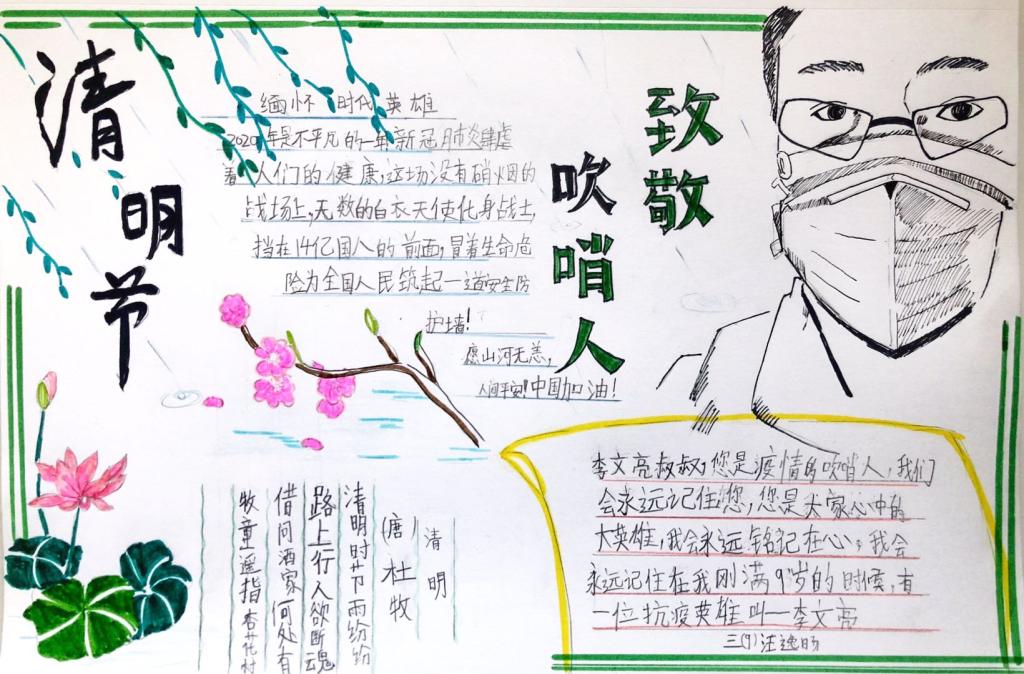 清明节
缅怀时代英雄
2020年是不平凡的一年,新冠肺炎肆虐
着人们的健康,这场没有硝烟的
战场上,无数的白衣天使化身战士,
挡在14亿国人的前面,冒着生命危
险为全国人民筑起一道安全防
护墙!
愿山河无恙,
人间平安!中国加油!
致敬
吹哨人
清明
唐 杜牧
清明时节雨纷纷
路上行人欲断魂
借问酒家何处有
牧童遥指杏花村
李文亮叔叔,您是疫情的吹哨人,我们
会永远记住您,您是大家心中的
大英雄,我会永远铭记在心,我会
永远记住在我刚满9岁的时候,有
一位抗疫英雄叫—李文亮
三(9)汪逸旸